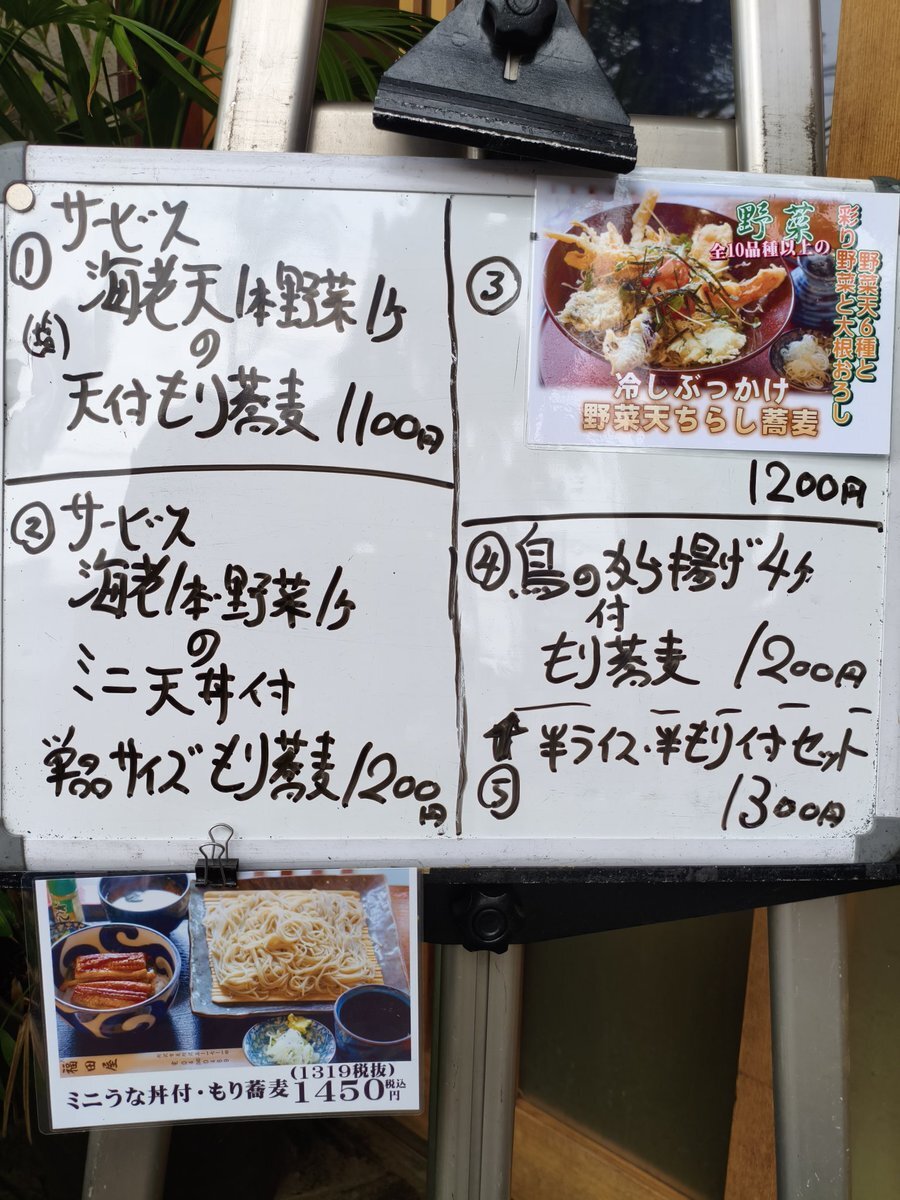 ① サービス
海老天1本野菜1ヶ
の
天付もり蕎麦 1100円
② サービス
海老1本・野菜1ヶ
の
ミニ天丼付
単品サイズもり蕎麦 1200円
③
野菜
全10品種以上の
彩り野菜と大根おろし
野菜天6種と
冷しぶっかけ
野菜天ちらし蕎麦
1200円
④ 鳥の竜田揚げ4ヶ
付
もり蕎麦 1200円
⑤ 半ライス・半もり付セット
1300円
福田屋
(1319税抜)
ミニうな丼付・もり蕎麦 1450税込円